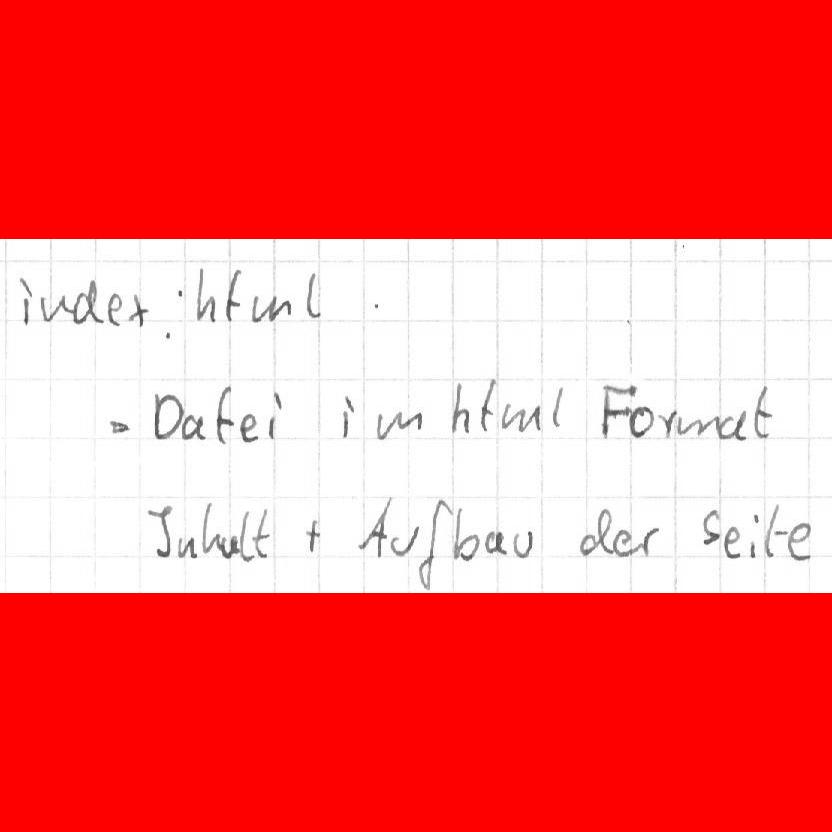 index.html
- Datei im html Format
Inhalt + Aufbau der Seite